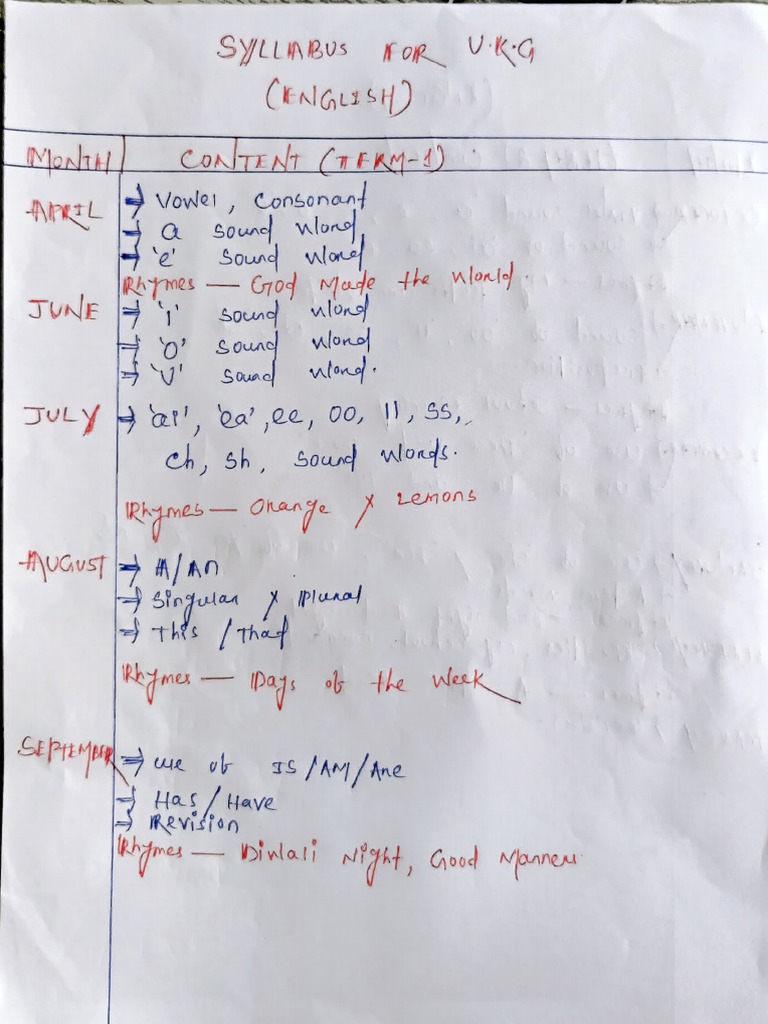 SYLLABUS FOR U.K.G
(ENGLISH)
MONTH CONTENT (TERM-1)
APRIL ⇒ Vowel, Consonant
⇒ a sound Word
⇒ 'e' sound Word
Rhymes — God Made the World.
JUNE ⇒ 'i' sound Word
⇒ 'O' sound Word
⇒ 'U' sound Word.
JULY ⇒ 'ai', 'ea', ee, OO, ll, SS,
Ch, Sh, Sound Words.
Rhymes — Orange & Lemons
AUGUST ⇒ A/An
⇒ Singular & Plural
⇒ This / That
Rhymes — Days of the Week
SEPTEMBER ⇒ use of IS/AM/Are
⇒ Has/Have
⇒ Revision
Rhymes — Diwali Night, Good Manners